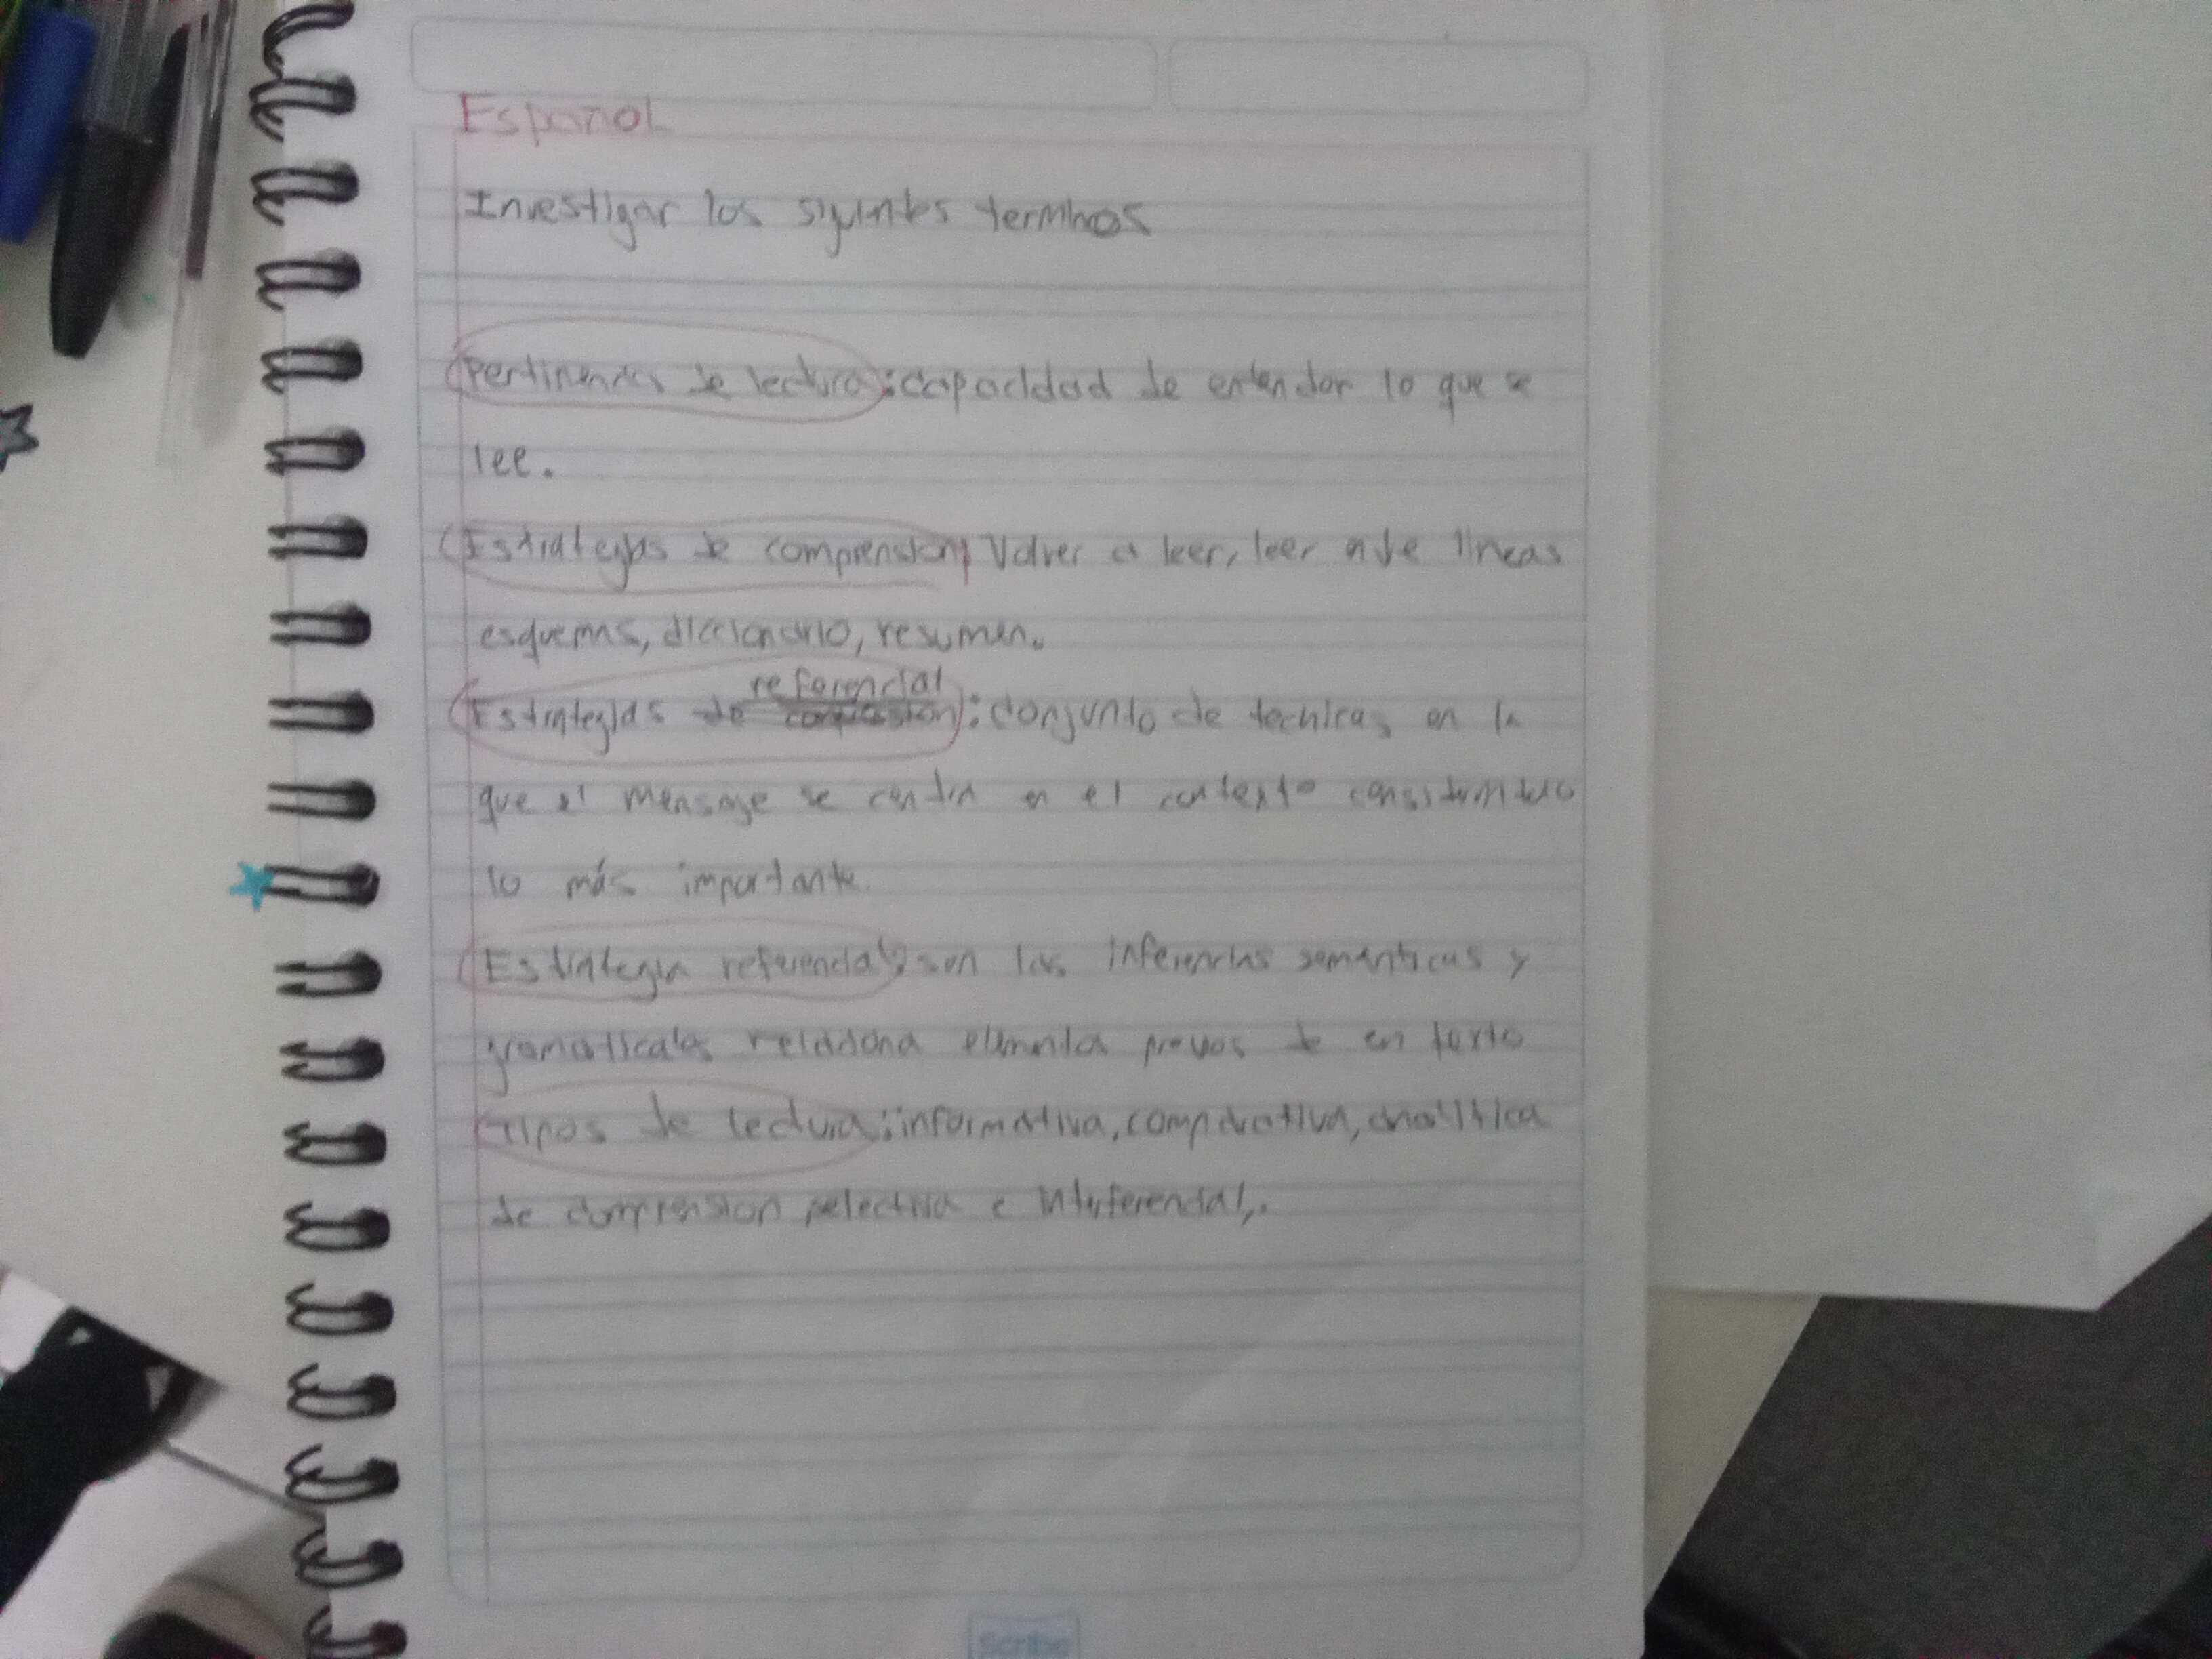 Español
Investigar los siguintes terminos
Pertinencia de lectura: capacidad de entender lo que se
lee.
Estrategias de comprension Volver a leer, leer lineas
esquemas, diccionario, resumen.
referencial
Estrategias de : conjunto de tecnicas en la
que el mensaje se centra en el contexto considerando
lo más importante.
Estrategia referencial, son las inferencias semanticas y
gramaticales relaciona elementos previos de en texto
tipos de lectura: informativa, comparativa, analitica
de comprension selectiva e interferencial,.
Scribe